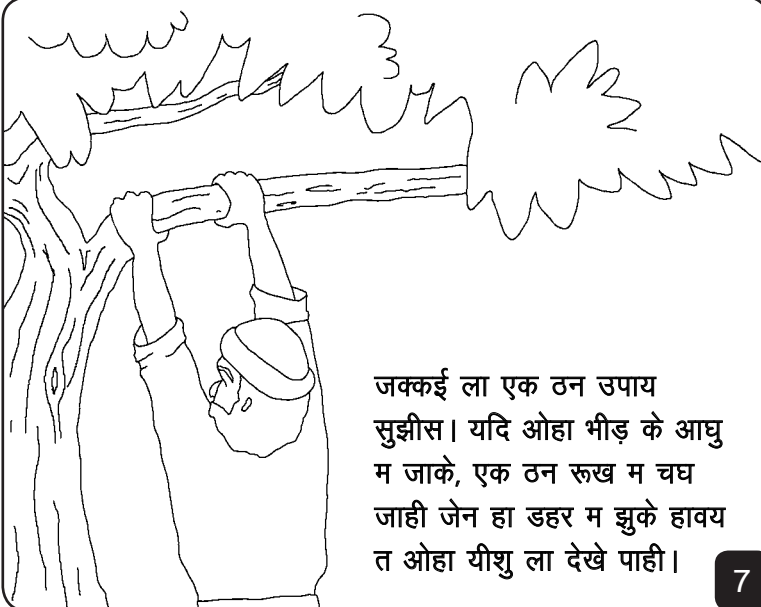 जक्कई ला एक ठन उपाय
सुझीस। यदि ओहा भीड़ के आघु
म जाके, एक ठन रूख म चघ
जाही जेन हा डहर म झुके हावय
त ओहा यीशु ला देखे पाही।
7